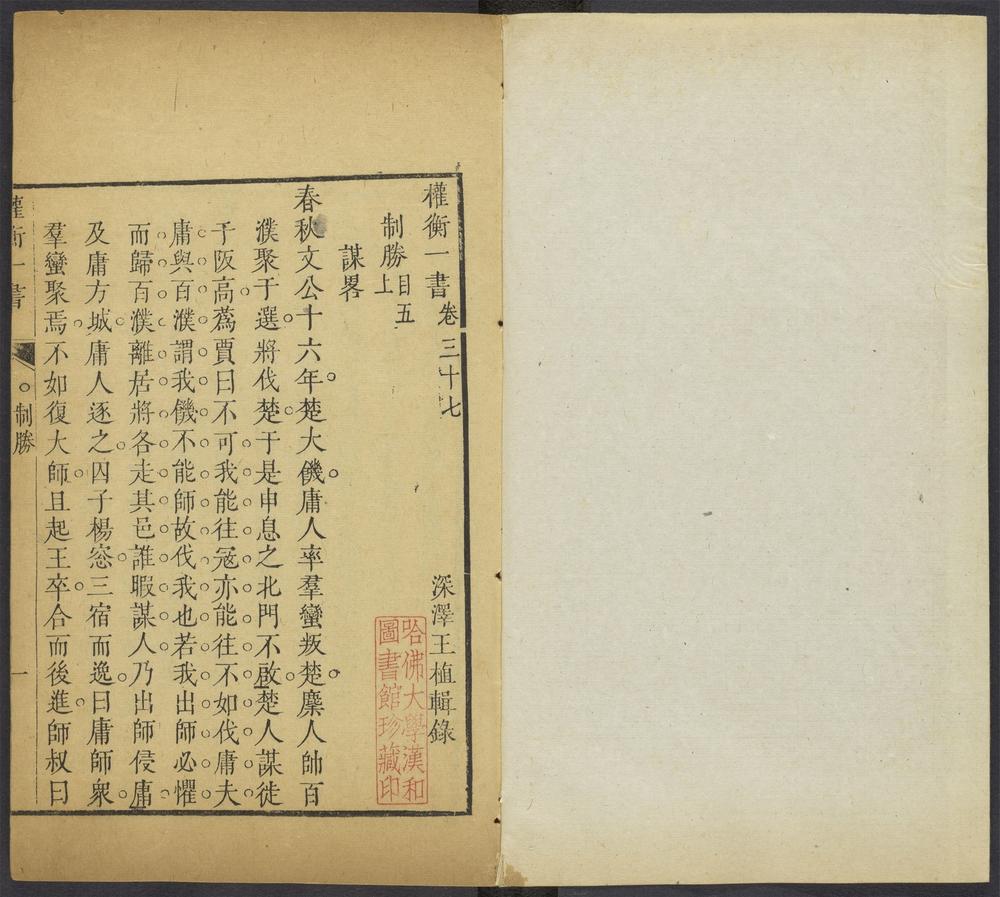 權衡一書卷三十七
深澤王植輯錄
制勝上目五
謀畧
春秋文公十六年楚大饑庸人率羣蠻叛楚麇人帥百
濮聚于選將伐楚于是申息之北門不啟楚人謀徙
于阪高蔿賈曰不可我能往寇亦能往不如伐庸夫
庸與百濮謂我饑不能師故伐我也若我出師必懼
而歸百濮離居將各走其邑誰暇謀人乃出師侵庸
及庸方城庸人逐之囚子楊窓三宿而逸曰庸師衆
羣蠻聚焉不如復大師且起王卒合而後進師叔曰
權衡一書
制勝
一
哈佛大學漢和
圖書館珍藏印